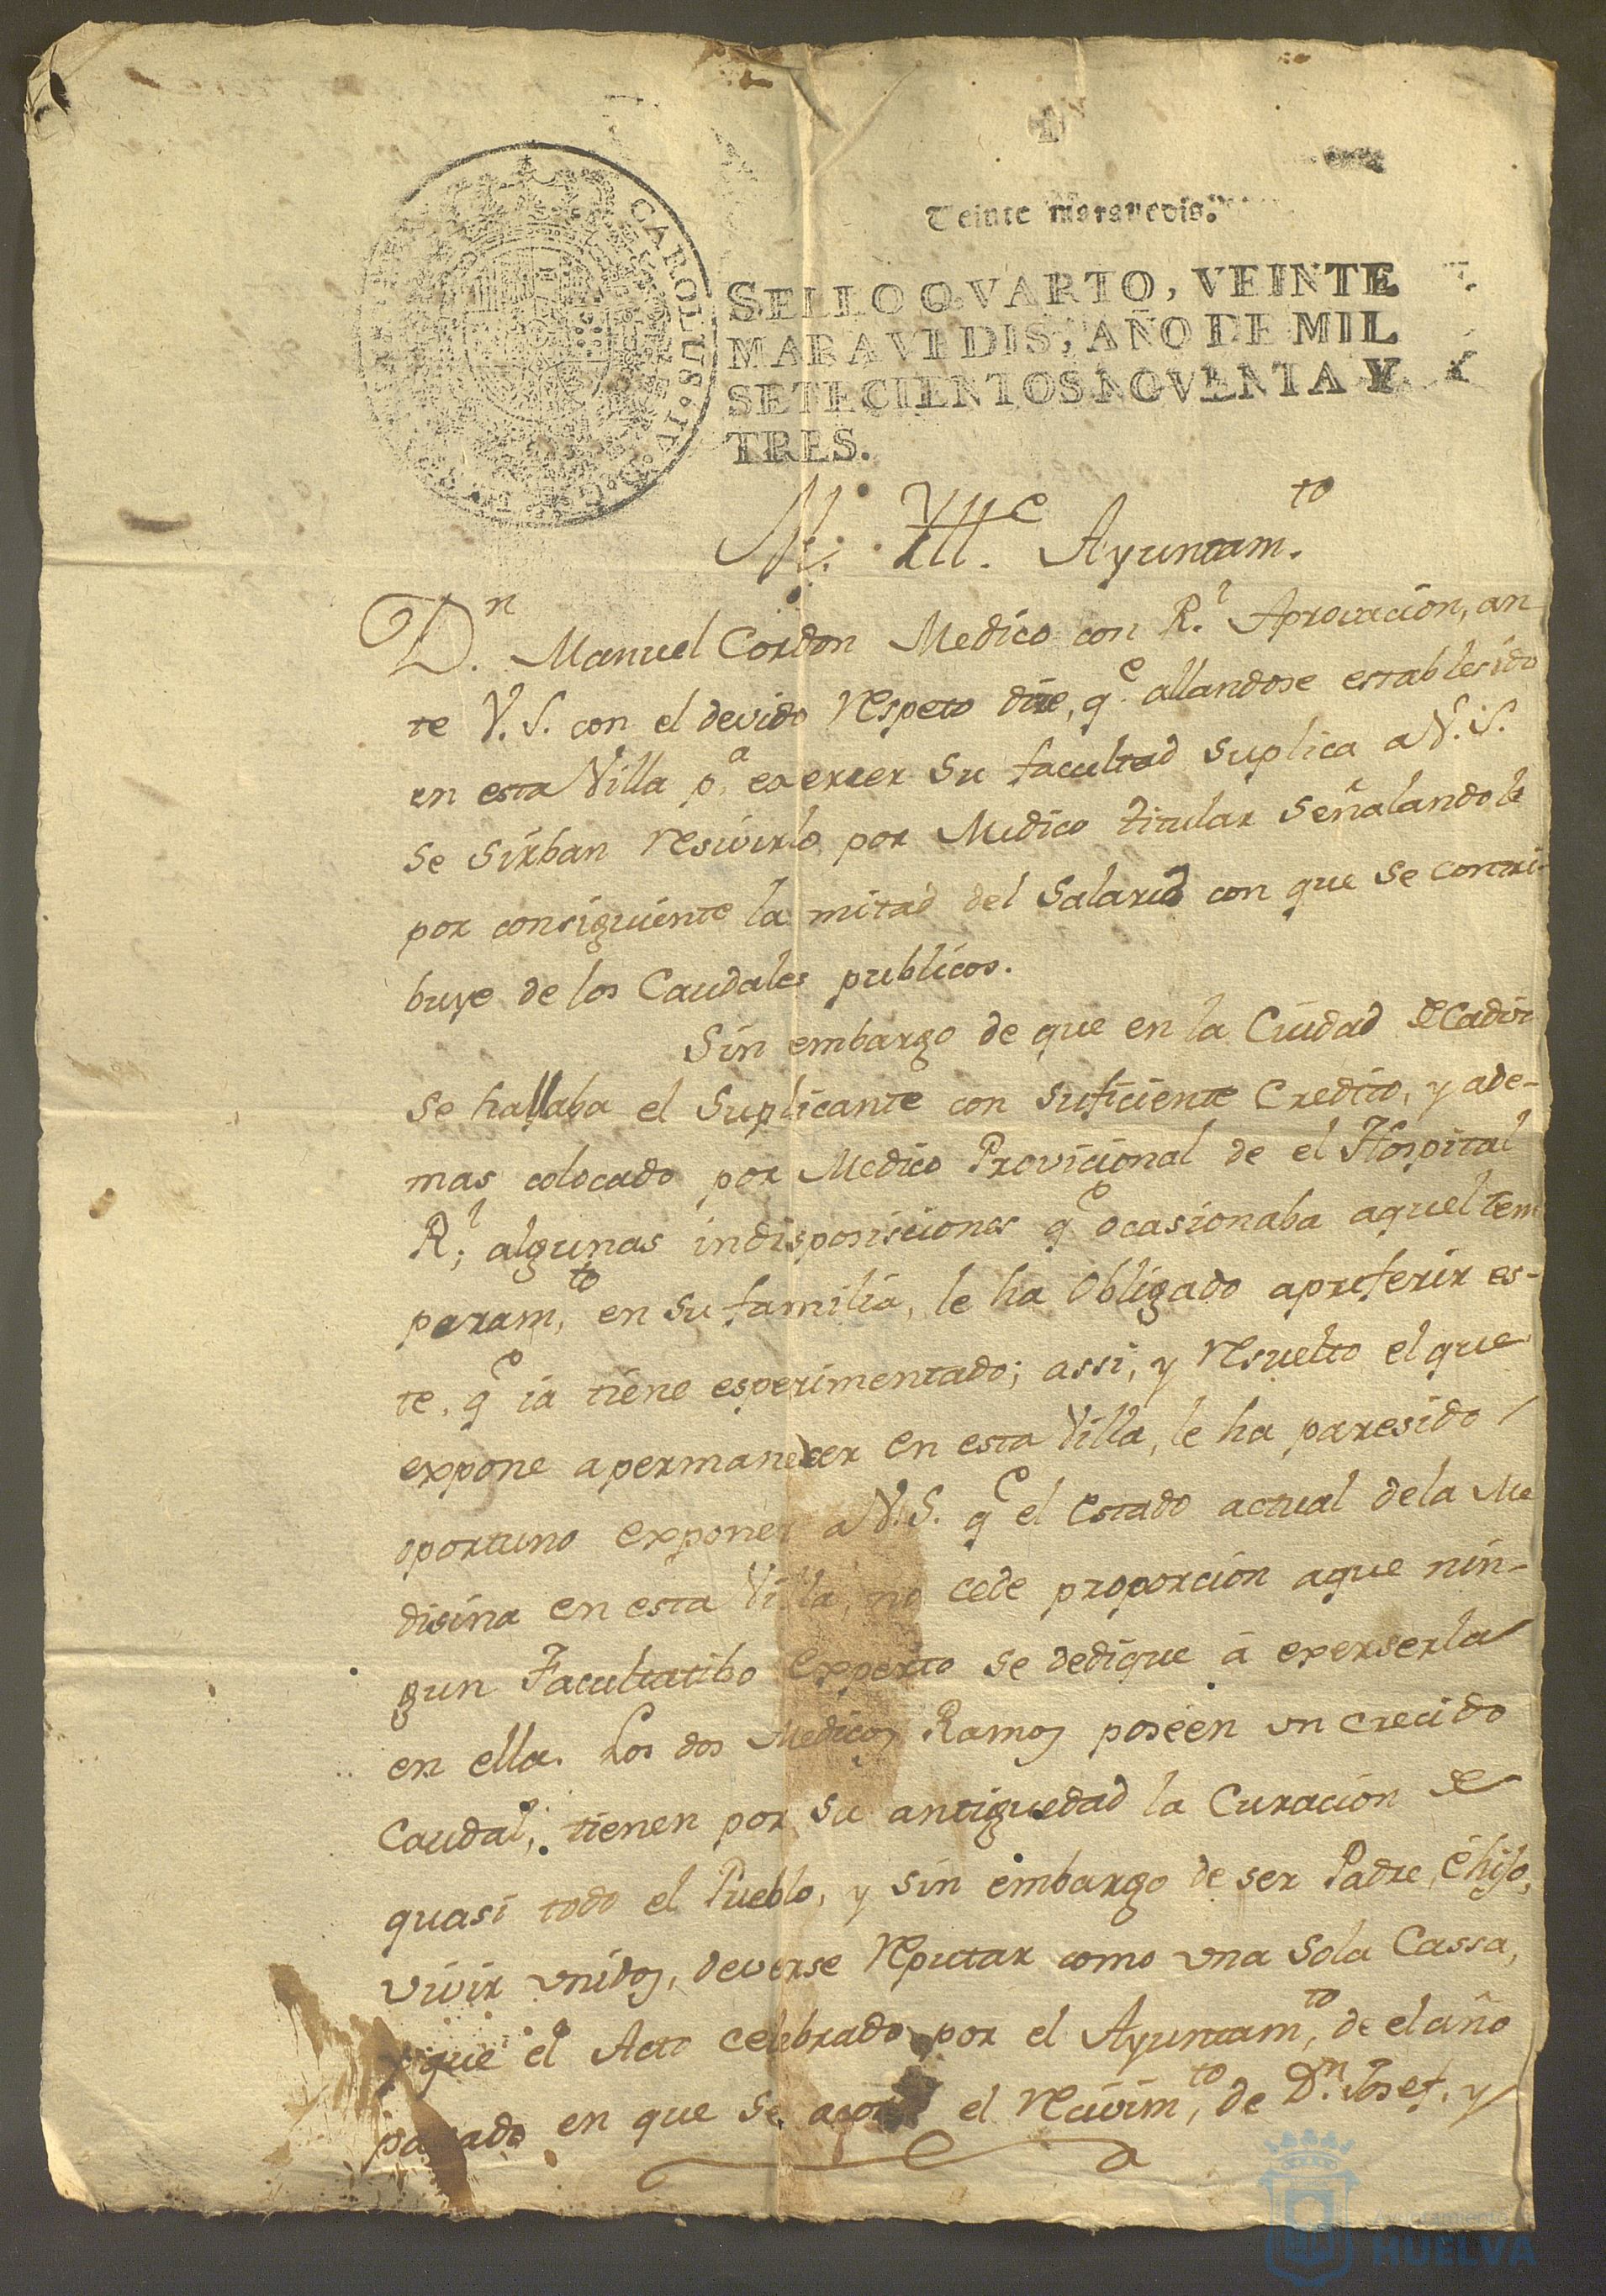 Veinte maravedis.
CAROLUS · IV · D · G ·
SELLO QVARTO, VEINTE
MARAVEDIS, AÑO DE MIL
SETECIENTOS NOVENTA Y
TRES.
M. Ill.e Ayuntam.to
D.n Manuel Cordon Medico con R.l Aprovacion, an
te V.S. con el devido respeto dice, q.e allandose establesido
en esta Villa p.a exercer su facultad suplica a V.S.
se sirban resivirlo por Medico titular señalandole
por consiguiente la mitad del salario con que se contri-
buye de los Caudales publicos.
Sin embargo de que en la Ciudad de Cadiz
se hallaba el suplicante con suficiente credito, y ade-
mas colocado por Medico Provicional de el Hospital
R.l, algunas indisposiciones q.e ocasionaba aquel tem
peram.to en su familia, le ha obligado a preferir es-
te, q.e ia tiene esperimentado; assi, y resuelto el que
expone a permanecer en esta Villa, le ha paresido
oportuno exponer a V.S. q.e el estado actual de la Me
disina en esta Villa, no cede proporcion a que nin-
gun Facultatibo experto se dedique á exerserla
en ella. Los dos Medicos Ramos poseen un crecido
Caudal, tienen por su antiguedad la Curacion de
quasi todo el Pueblo, y sin embargo de ser Padre, é hijo,
vivir unidos, deverse reputar como una sola Cassa,
y que el Acto celebrado por el Ayuntam.to de el año
pasado en que se acordó el recivim.to de D.n Josef, y
Ayuntamiento
HUELVA